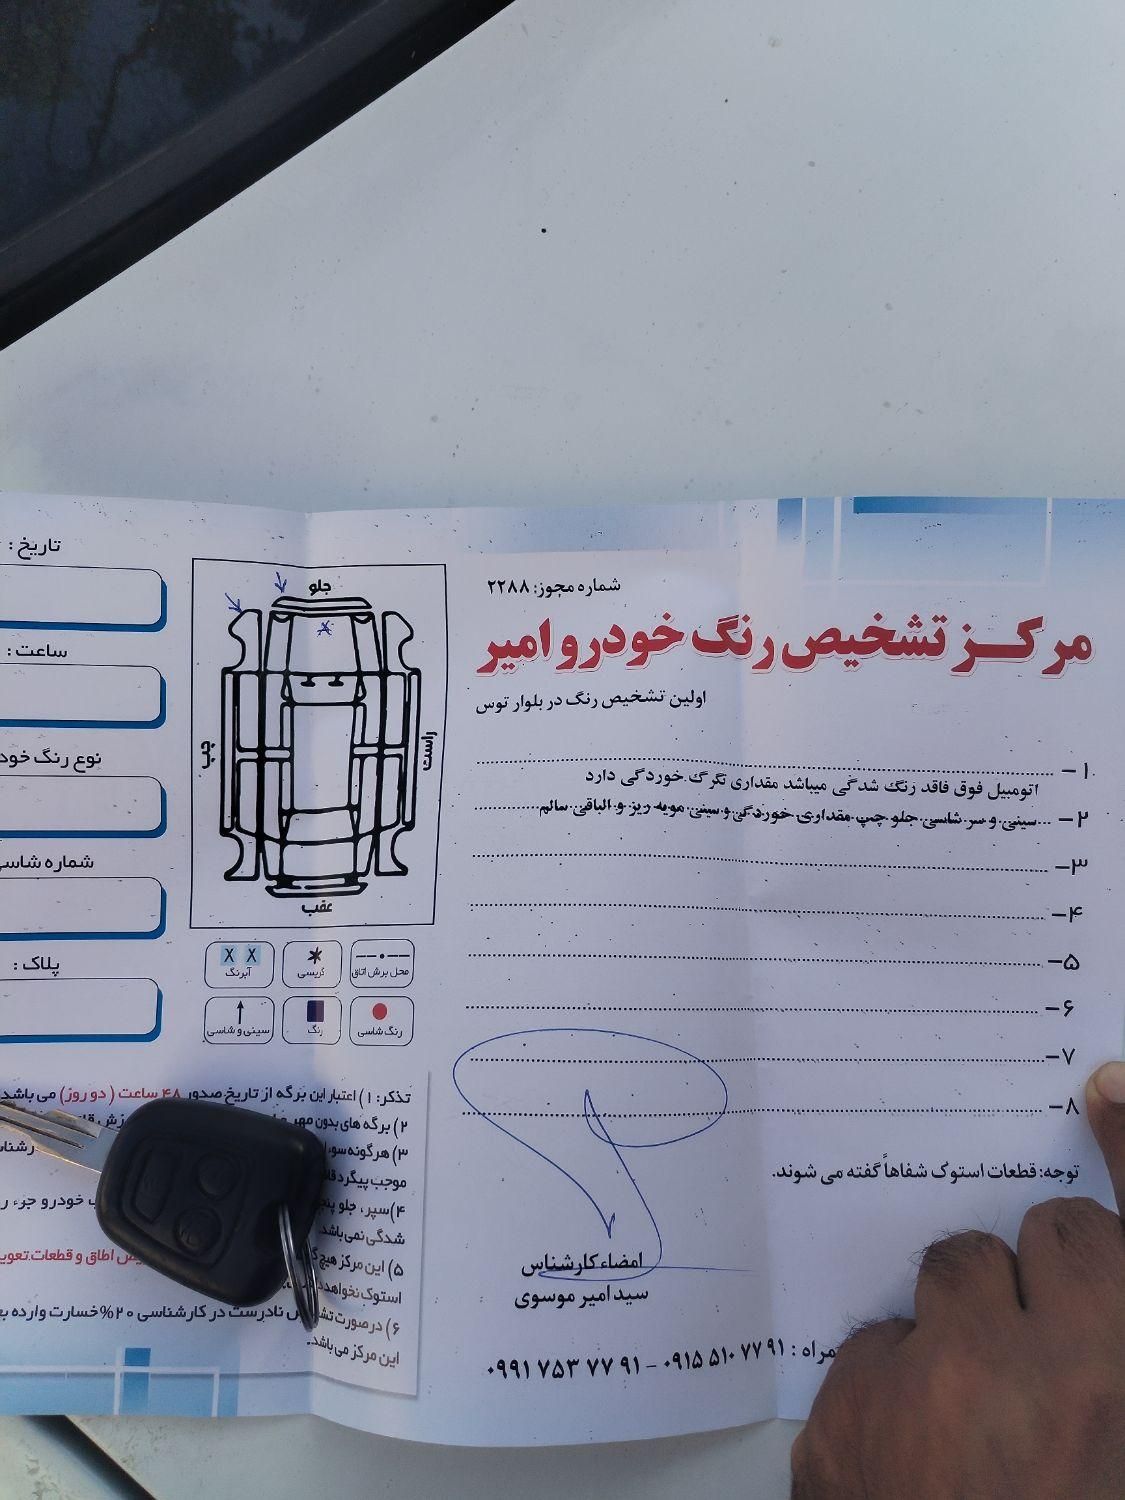 شماره مجوز: ۲۲۸۸
مرکز تشخیص رنگ خودرو امیر
اولین تشخیص رنگ در بلوار توس
۱-
اتومبیل فوق فاقد رنگ شدگی میباشد مقداری تگرگ خوردگی دارد
۲- سینی و سر شاسی جلو چپ مقداری خوردگی و سینی مویه ریز و الباقی سالم
۳-
۴-
۵-
۶-
۷-
۸-
توجه: قطعات استوک شفاهاً گفته می شوند.
امضاء کارشناس
سید امیر موسوی
مراه : ۰۹۱۵ ۵۱۰ ۷۷ ۹۱ - ۰۹۹۱ ۷۵۳ ۷۷ ۹۱
جلو
چپ
راست
عقب
محل برش اتاق
گریسی
X X
آبرنگ
رنگ شاسی
رنگ
سینی و شاسی
تاریخ :
ساعت :
نوع رنگ خود
شماره شاسی
پلاک :
تذکر: ۱) اعتبار این برگه از تاریخ صدور ۴۸ ساعت ( دو روز) می باشد
۲) برگه های بدون مهر
۳) هرگونه سو
موجب پیگرد
۴) سپر، جلو خودرو جزء
شدگی نمی باشد.
۵) این مرکز هیچ اطاق و قطعات تعویض
استوک نخواهد
۶) در صورت نادرست در کارشناسی ۲۰% خسارت وارده
این مرکز می باشد.